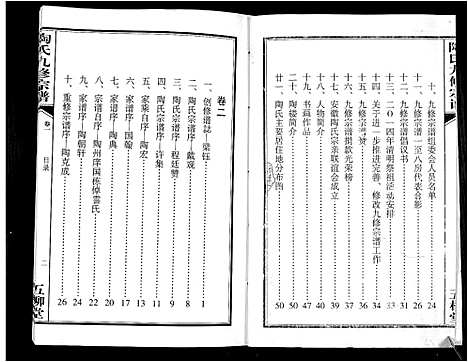 陶氏九修宗谱
十、九修宗谱组委会人员名单 24
十一、九修宗谱一至八房代表合影 26
十二、九修宗谱倡议书 31
十三、二〇一四年清明祭祖活动安排 33
十四、关于进一步推进完善、修改九修宗谱工作 34
十五、九修宗谱捐款光荣榜 37
十六、安徽陶氏宗亲联谊会成立 44
十七、人物简介 47
十八、书后鸣赞 48
十九、陶楼简介 50
二十、陶氏主要居住地分布图 50
五柳堂
卷二
一、创修谱誌—梁钰 1
二、陶氏宗谱序—戴观 8
三、陶氏宗谱序—程廷赞 9
四、陶氏宗谱序—许集 11
五、家乘自序—陶宏 13
六、家谱序—国翰 17
七、家谱序—陶典
八、宗谱自序—陶州庠国栋悼雲氏
九、家谱序—陶朝轩 24
十、重修宗谱序—陶克成 26
陶氏九修宗谱
卷一
目录
二
五柳堂